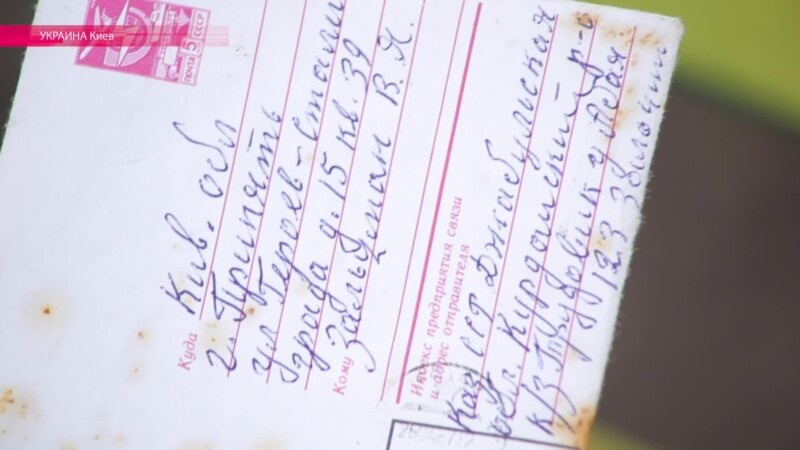 УКРАИНА Киев
ПОЧТА 5 СССР
Куда Кив. обл
г. Припять
ул Героев-Стали
града д. 15 кв. 39
Кому Зальцман В. Я.
Индекс предприятия связи
и адрес отправителя
Каз ССР Джабульская
обл. Курдайский р-о
к/з Трудовик
123